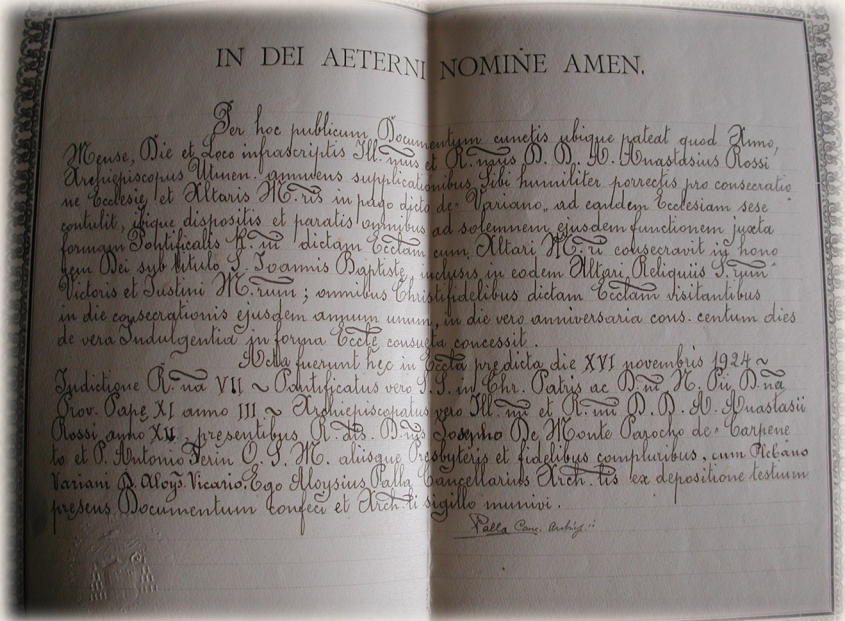 IN DEI AETERNI NOMINE AMEN.
Per hoc publicum Documentum cunctis ubique pateat quod Anno,
Mense, Die et Loco infrascriptis Ill.mus et R.mus D. D. A. Anastasius Rossi
Archiepiscopus Utinen. annuens supplicationibus Sibi humiliter porrectis pro consecratio
ne Ecclesię et Altaris M.ris in pago dicto de "Variano" ad eandem Ecclesiam sese
contulit, ibique dispositis et paratis omnibus ad solemnem ejusdem functionem juxta
formam Pontificalis dictam Ecctam cum Altari M.ri consecravit in hono
rem Dei sub titulo S. Ioannis Baptistę, inclusis in eodem Altari Reliquiis S.rum
Victoris et Iustini M.rum; omnibus Christifidelibus dictam Ecctam visitantibus
in die consecrationis ejusdem annum unum, in die vero anniversaria cons. centum dies
de vera Indulgentia in forma Ecctę consueta concessit.
Acta fuerunt hęc in Eccta prędicta die XVI novembris 1924 ~
Indictione R.na VII ~ Pontificatus vero S.S. in Chr. Patris ac D.ni N. Pii D.na
Prov. Papę XI anno III ~ Archiepiscopatus vero Ill.mi et R.mi D. D. A. Anastasii
Rossi anno XV, pręsentibus R.dis D.nis Iosepho De Monte Parocho de "Carpene
to et P. Antonio O. S. M. aliisque Presbyteris et fidelibus compluribus, cum Plebano
Variani D. Aloys. Vicario. Ego Aloysius Palla Cancellarius Arch.lis ex depositione testium
pręsens Documentum confeci et Arch.li sigillo munivi.
Palla Canc.